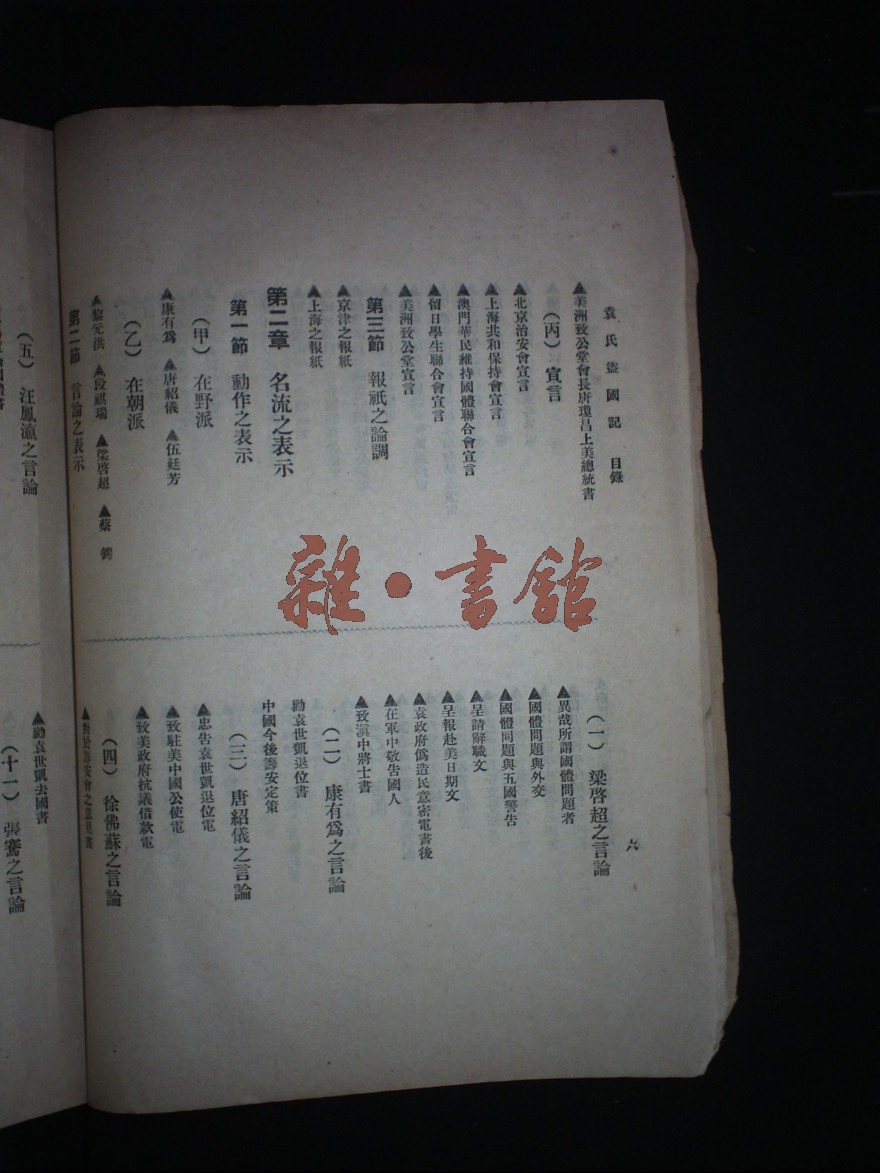 袁氏盜國記　目錄
▲美洲致公堂會長唐瓊昌上美總統書
（丙）宣言
▲北京治安會宣言
▲上海共和保持會宣言
▲澳門華民維持國體聯合會宣言
▲留日學生聯合會宣言
▲美洲致公堂宣言
第三節　報紙之論調
▲京津之報紙
▲上海之報紙
第二章　名流之表示
第一節　動作之表示
（甲）在野派
▲康有爲　▲唐紹儀　▲伍廷芳
（乙）在朝派
▲黎元洪　▲段祺瑞　▲梁啓超　▲蔡　鍔
第二節　言論之表示
六
（一）梁啓超之言論
▲異哉所謂國體問題者
▲國體問題與外交
▲國體問題與五國警告
▲呈請解職文
▲呈報赴美日期文
▲袁政府僞造民意密電書後
▲在軍中敬告國人
▲致滇中將士書
（二）康有爲之言論
勸袁世凱退位書
中國今後籌安定策
（三）唐紹儀之言論
▲忠告袁世凱退位電
▲致駐美中國公使電
▲致美政府抗議借款電
（四）徐佛蘇之言論
▲對於籌安會之意見書
（五）汪鳳瀛之言論
▲勸袁世凱去國書
（十一）張謇之言論
雜・書館